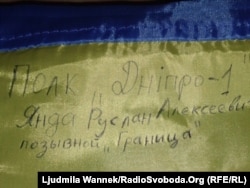 Полк „Дніпро-1"
Янда Руслан Алексеевич
позывной „Граница"
Ljudmila Wannek/RadioSvoboda.Org (RFE/RL)